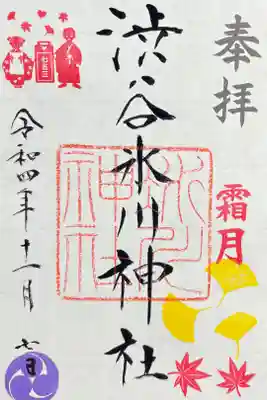 奉拝
霜月
渋谷氷川神社
氷川神社
令和四年十一月七日
七五三